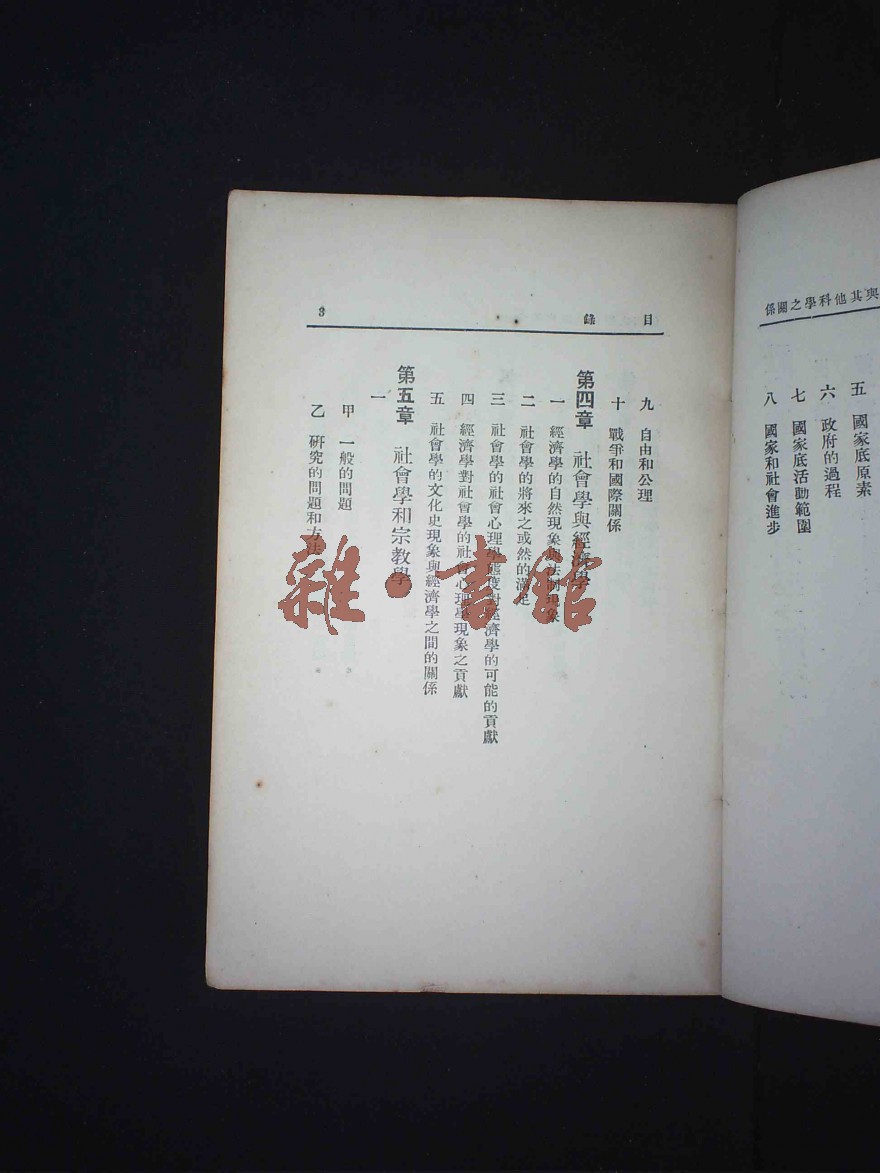 與其他科學之關係
五 國家底原素
六 政府的過程
七 國家底活動範圍
八 國家和社會進步
目錄 3
九 自由和公理
十 戰爭和國際關係
第四章 社會學與經濟學
一 經濟學的自然現象與法制現象
二 社會學的將來之或然的滿足
三 社會學的社會心理學態度對經濟學的可能的貢獻
四 經濟學對社會學的社會心理學現象之貢獻
五 社會學的文化史現象與經濟學之間的關係
第五章 社會學和宗教學
一
甲 一般的問題
乙 研究的問題和方法
雜·書館